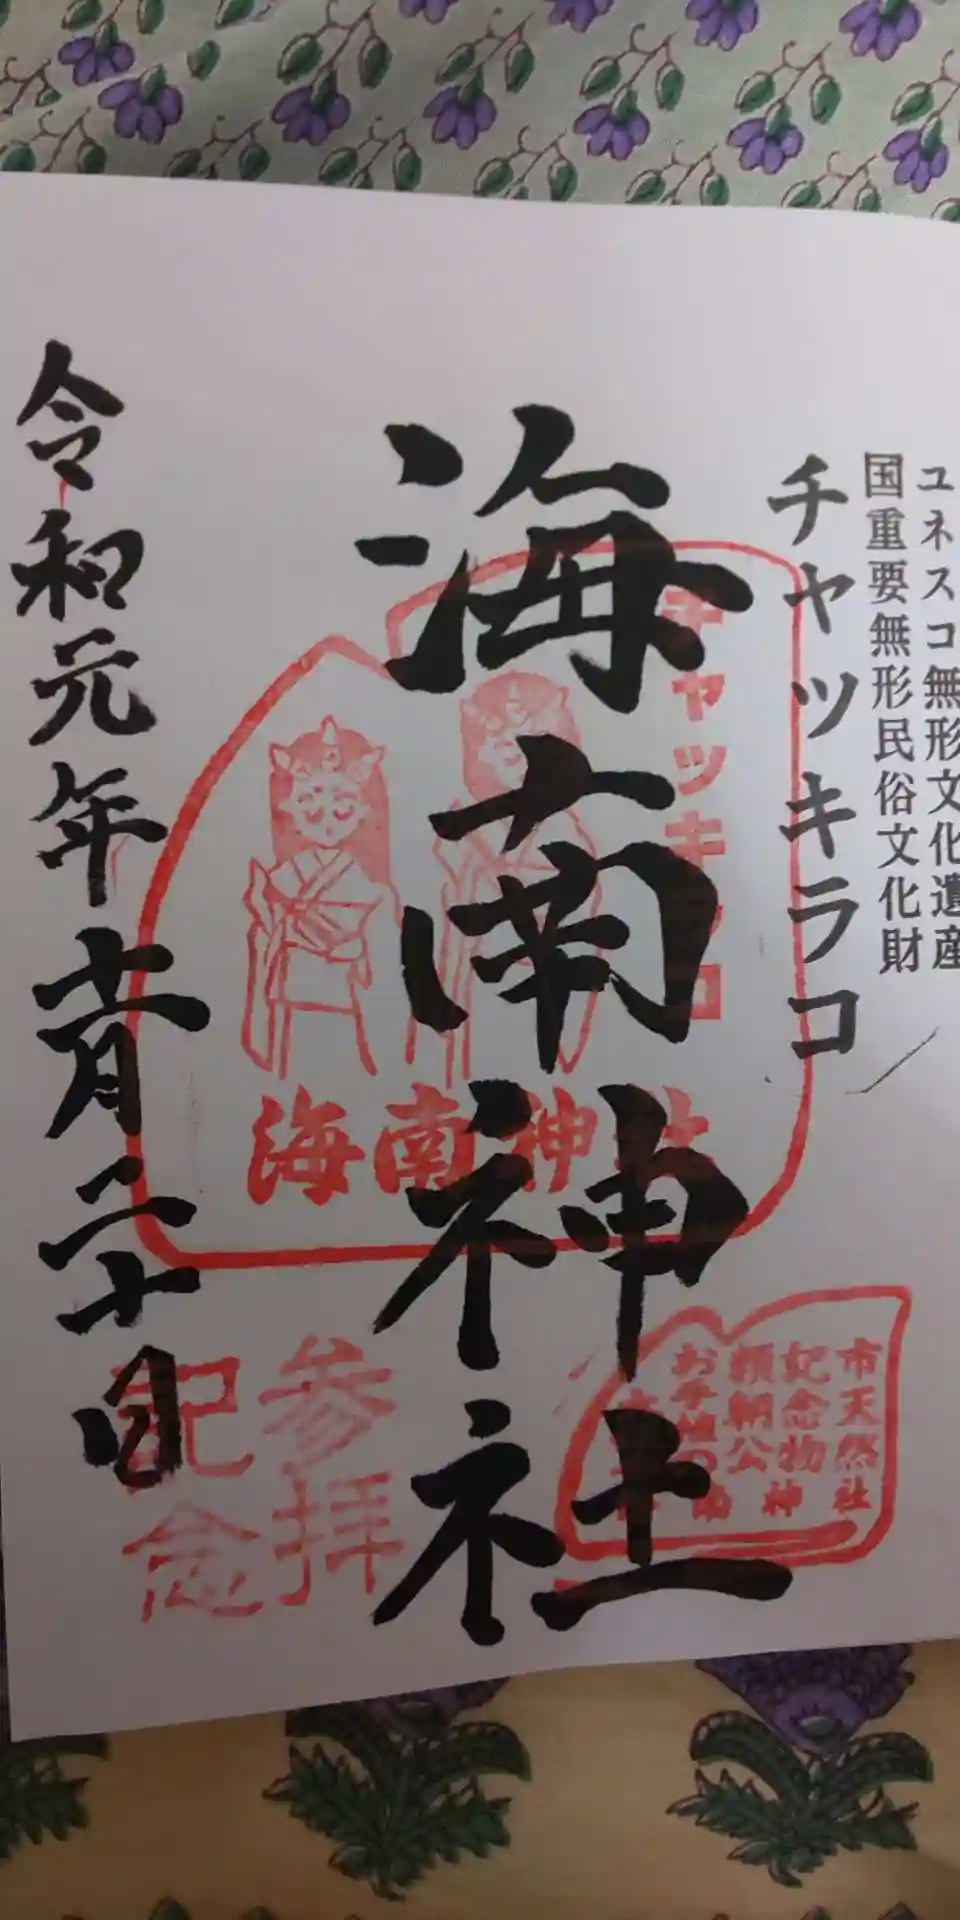 ユネスコ無形文化遺産
国重要無形民俗文化財
チャッキラコ
海南神社
令和元年十一月二十日
チャッキラコ
海南神社
市天然
記念物
頼朝公
お手植の
社神南
参拝
記念